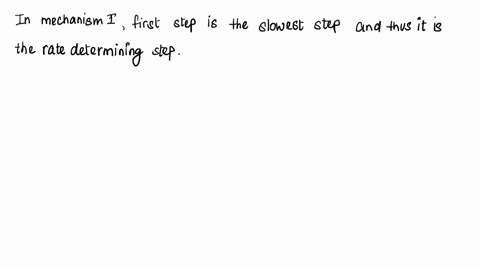 In mechanism I, first step is the slowest step and thus it is
the rate determining step.